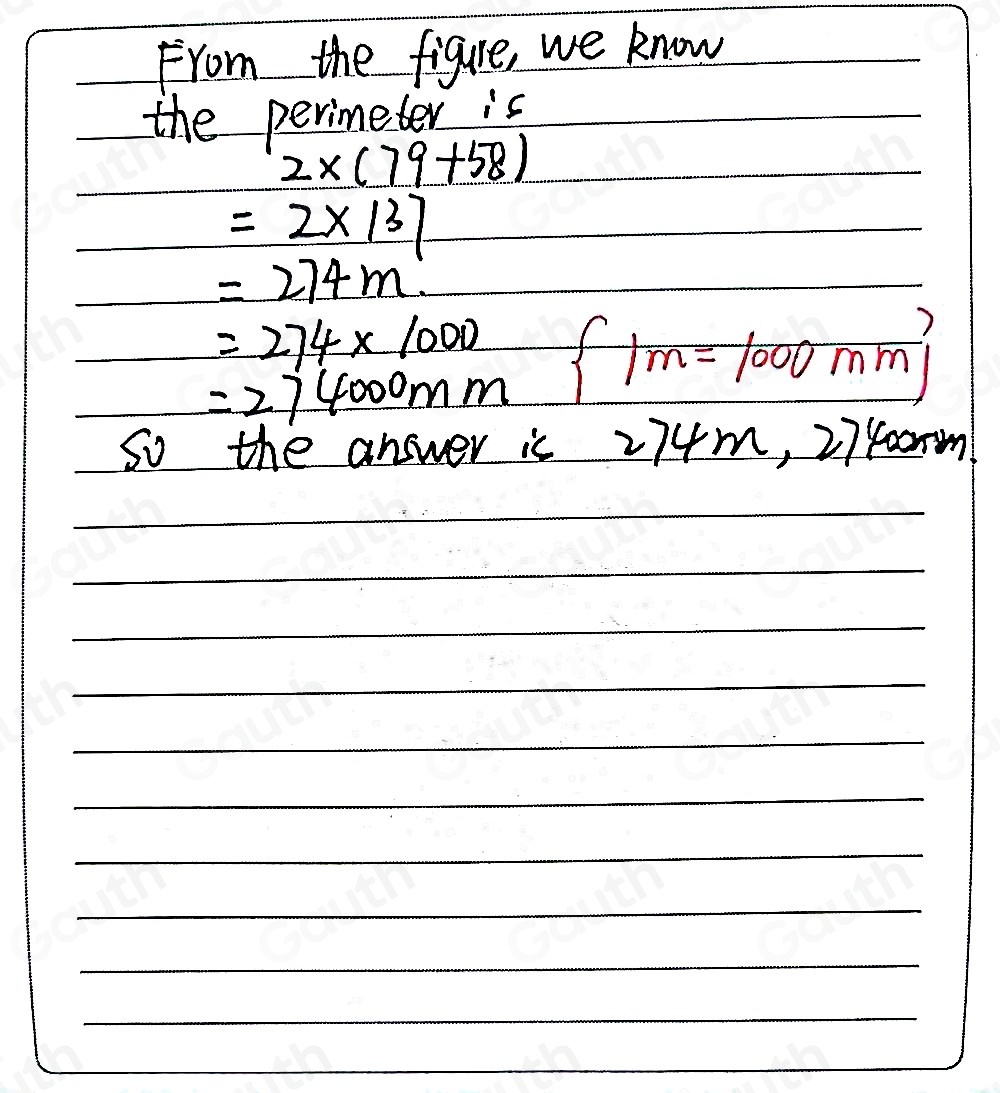 From the figure, we know
the perimeter is
2×(79+58)
= 2×137
= 274m.
= 274×1000 {1m=1000mm}
=274000mm
So the answer is 274m, 274000mm.